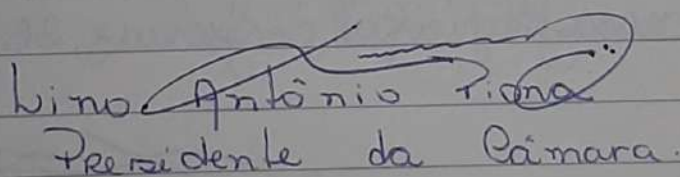 Lino Antônio Piona
Presidente da Câmara.